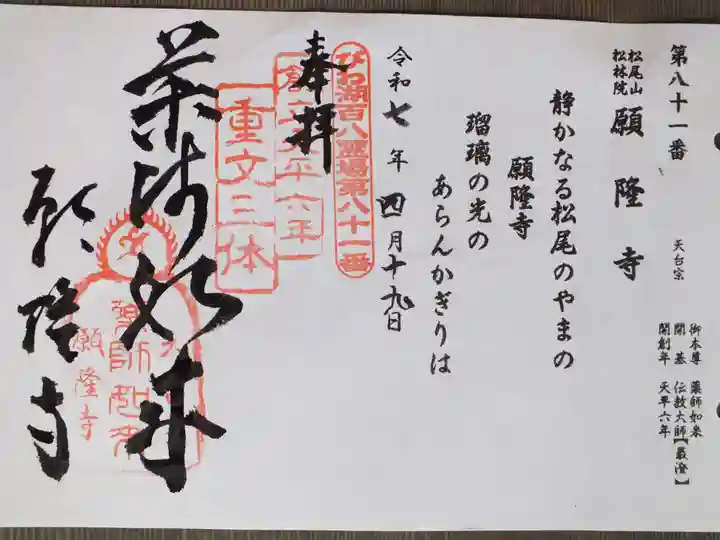 第八十一番
松尾山
松林院
願隆寺
天台宗
御本尊 薬師如来
開基 伝教大師【最澄】
開創年 天平六年
静かなる松尾のやまの
願隆寺
瑠璃の光の
あらんかぎりは
令和七年四月十九日
びわ湖百八霊場第八十一番
奉拝
創立天平六年
重文三体
薬師如来
願隆寺
薬師如来
願隆寺